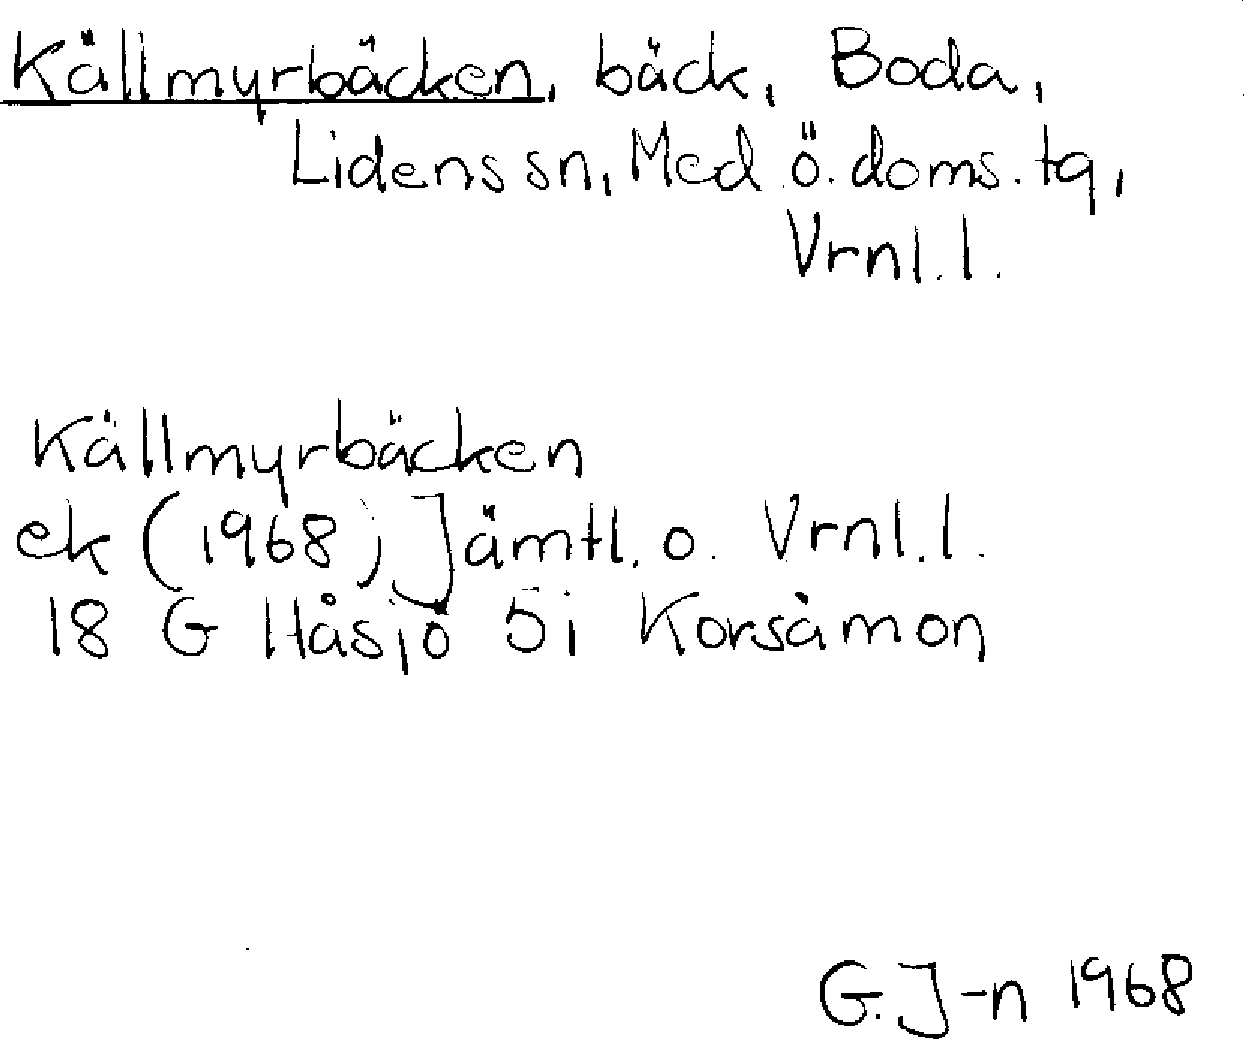 Källmyrbäcken, bäck, Boda,
Lidens sn, Med ö. doms. tg,
Vrnl. l.
Källmyrbäcken
ek (1968) Jämtl. o. Vrnl. l.
18 G Håsjö 5i Korsåmon
G. J-n 1968